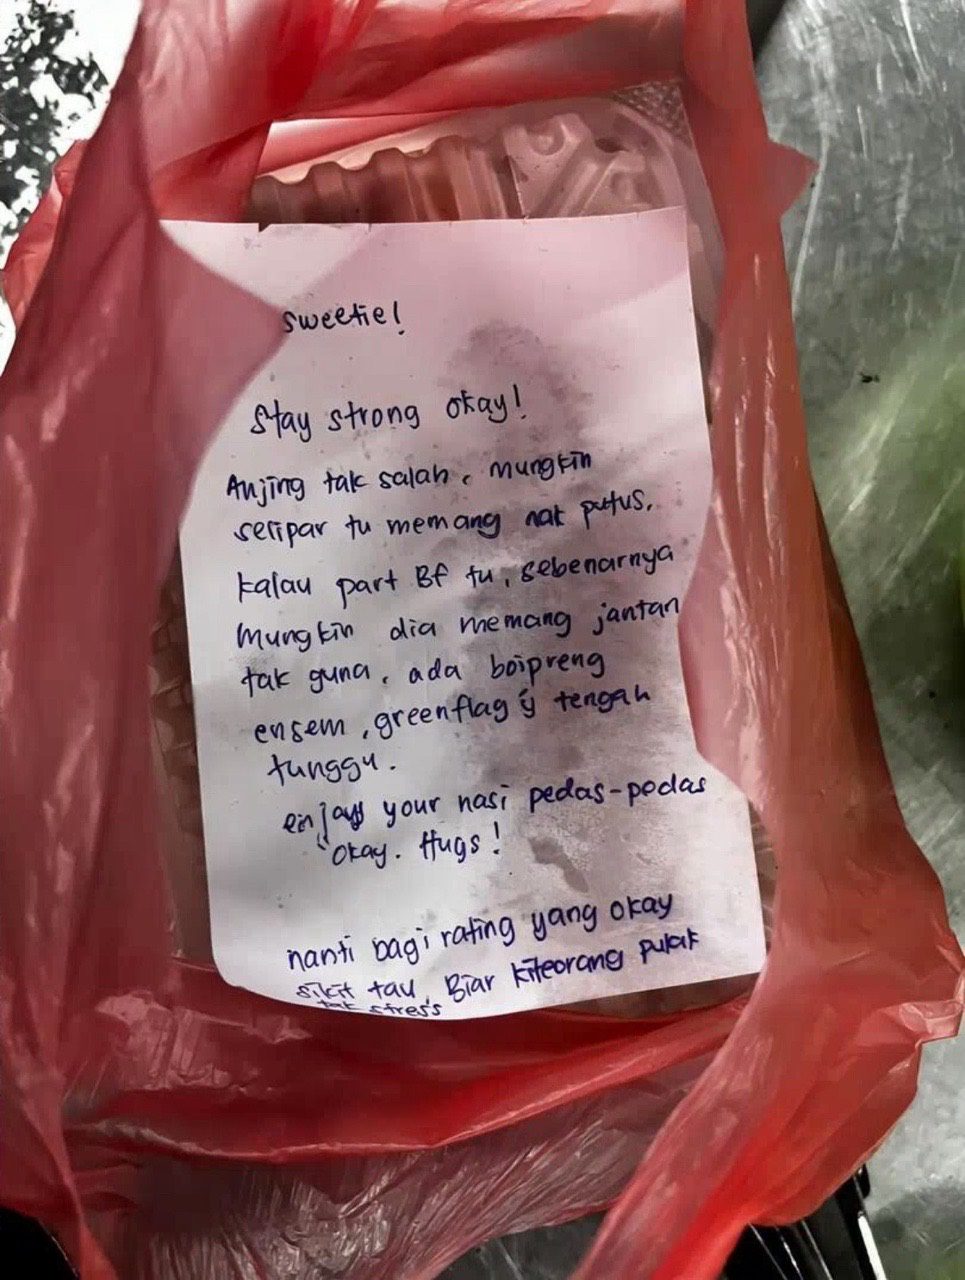 sweetie!
Stay strong okay!
Anjing tak salah, mungkin
seripar tu memang nak putus.
kalau part Bf tu, sebenarnya
mungkin dia memang jantan
tak guna, ada boipreng
ensem, greenflag yg tengah
tunggu.
enjoy your nasi pedas-pedas
okay. Hugs!
nanti bagi rating yang okay
sikit tau, Biar kiteorang pulak
tak stress